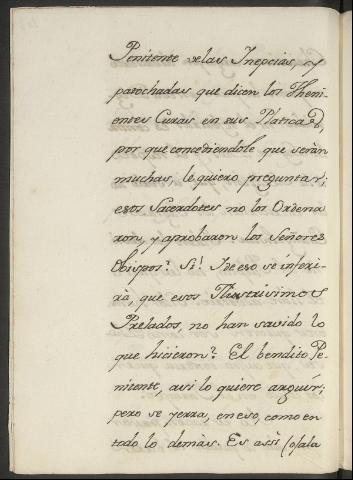 Penitente delas Inepcias, y
patochadas que dicen los Theni-
entes Curas en sus Platicas,
por que concediendole que seràn
muchas, le quiero preguntar;
esos Sacerdotes no los Ordena
ron, y aprobaron los Señores
Obispos? Si! I de eso se inferi-
rà, que esos Illustrisimos
Prelados, no han savido lo
que hicieron? El bendito Pe-
nitente, asi lo quiere arguir;
pero se yerra, en eso, como en
todo lo demàs. Es assi (ojala